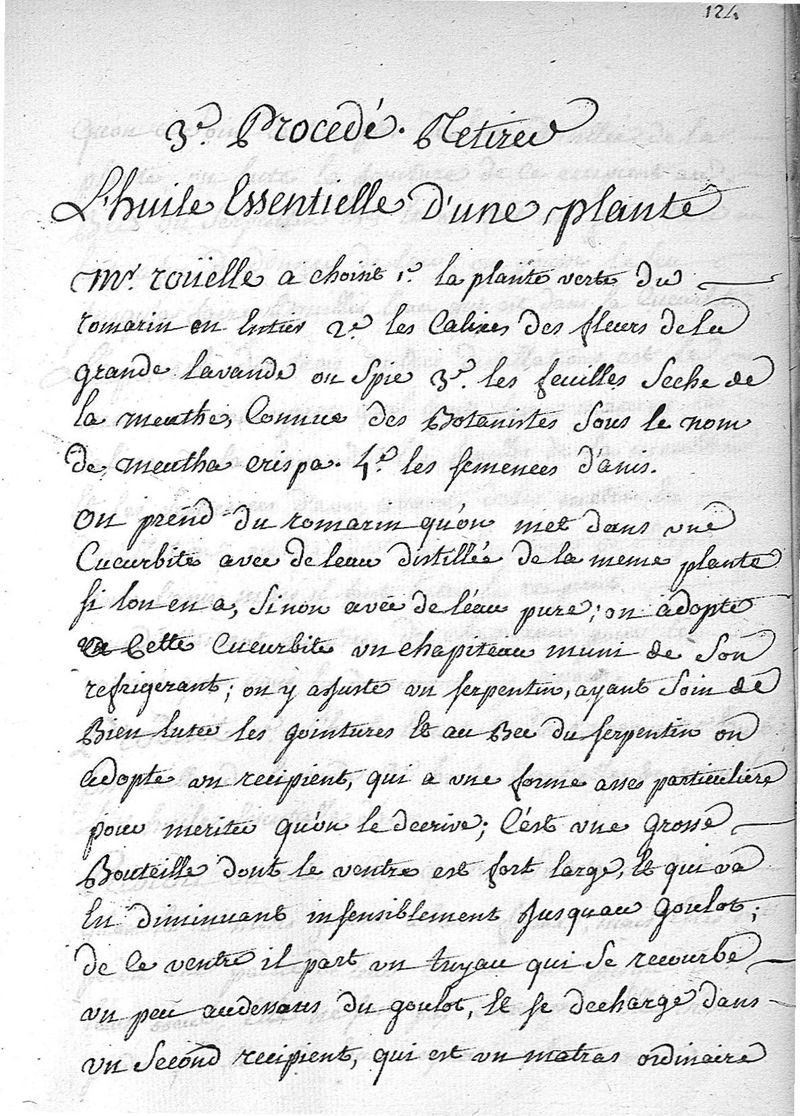 124
3.e Procedé. Retirer
L'huile Essentielle d'une plante
Mr. roüelle a choisit 1.e la plante verte du
romarin en Entier 2.e les Calices des fleurs de la
grande lavande ou Spic 3.e les feuilles Seche de
la menthe, Connue des Botanistes Sous le nom
de mentha crispa. 4.e les semences d'anis.
On prend du romarin qu'on met dans une
Cucurbite avec de leau distillée de la meme plante
si lon en a, Sinon avec de leau pure; on adopte
a Cette Cucurbite un chapiteau muni de Son
refrigerant; on y ajuste un serpentin, ayant Soin de
Bien luter les jointures Et au Bec du serpentin on
adopte un recipient, qui a une forme asses particuliere
pour meriter qu'on le decrive; C'est une grosse
Bouteille dont le ventre est fort large, Et qui va
En diminuant insensiblement Jusquau Goulot;
de Ce ventre il part un tuyau qui Se recourbe
un peu audessous du goulot, Et se decharge dans
un Second recipient, qui est un matras ordinaire